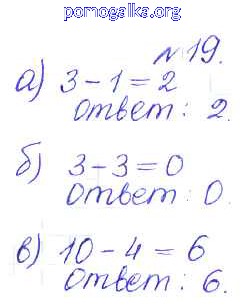 pomogalka.org
№19.
а) 3 - 1 = 2
Ответ: 2.
б) 3 - 3 = 0
Ответ: 0.
в) 10 - 4 = 6
Ответ: 6.